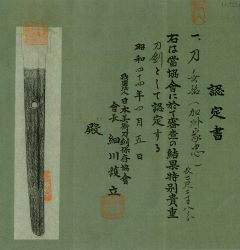 認定書
一、刀 無銘(加州家忠)
長二尺二寸八分
右は當協會に於て審査の結果特別貴重
刀剣として認定する
昭和四十四年四月五日
財團法人日本美術刀剣保存協會
會長 細川護立
殿